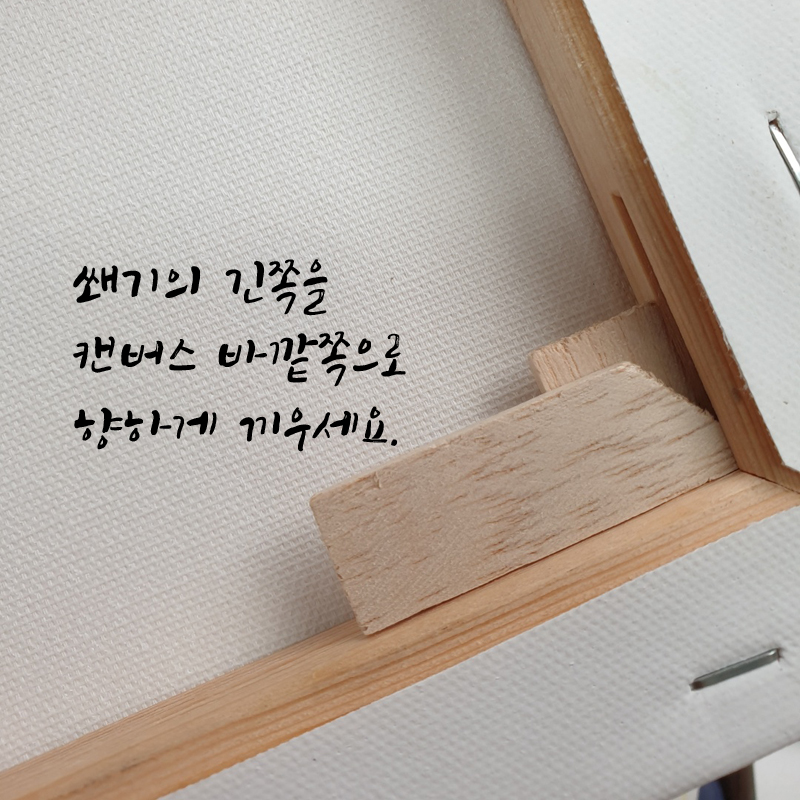 쐐기의 긴쪽을
캔버스 바깥쪽으로
향하게 끼우세요.